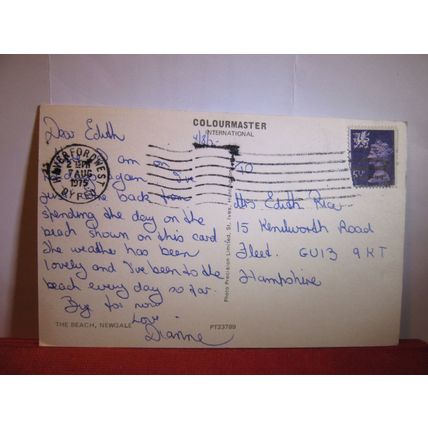 COLOURMASTER
INTERNATIONAL
Dear Edith
am on
again I've
back from
spending the day on the
beach shown on this card
The weather has been
lovely and I've been to the
beach every day so far.
Bye for now
Love
Dianne
THE BEACH, NEWGALE
PT23789
Photo Precision Limited, St. Ives,
HAVERFORDWEST
AUG
1975
TO
Mrs Edith Rice
15 Kenilworth Road
Fleet. GU13 9KT
Hampshire